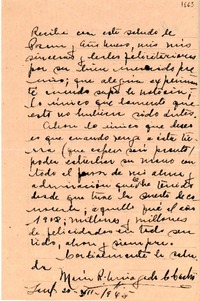 Reciba con este saludo de
Pascua y año nuevo, mis más
sinceras y leales felicitaciones
por su bien merecido pre-
mio; que alegria experimen-
te cuando supe la noticia;
lo único que lamento que
esto no hubiera sido antes.
Ahora lo único que deseo
es que cuando venga a esta tie-
rra (que espero sea pronto)
poder estrechar su mano con
todo el fervor de mi alma y
admiración que he tenido
desde que tuve la suerte de co-
nocerla, aquello fue el año
1918; millones y millones
de felicidades en todo sen-
tido, ahora y siempre.
Cordialmente le salu-
da
Maria R.